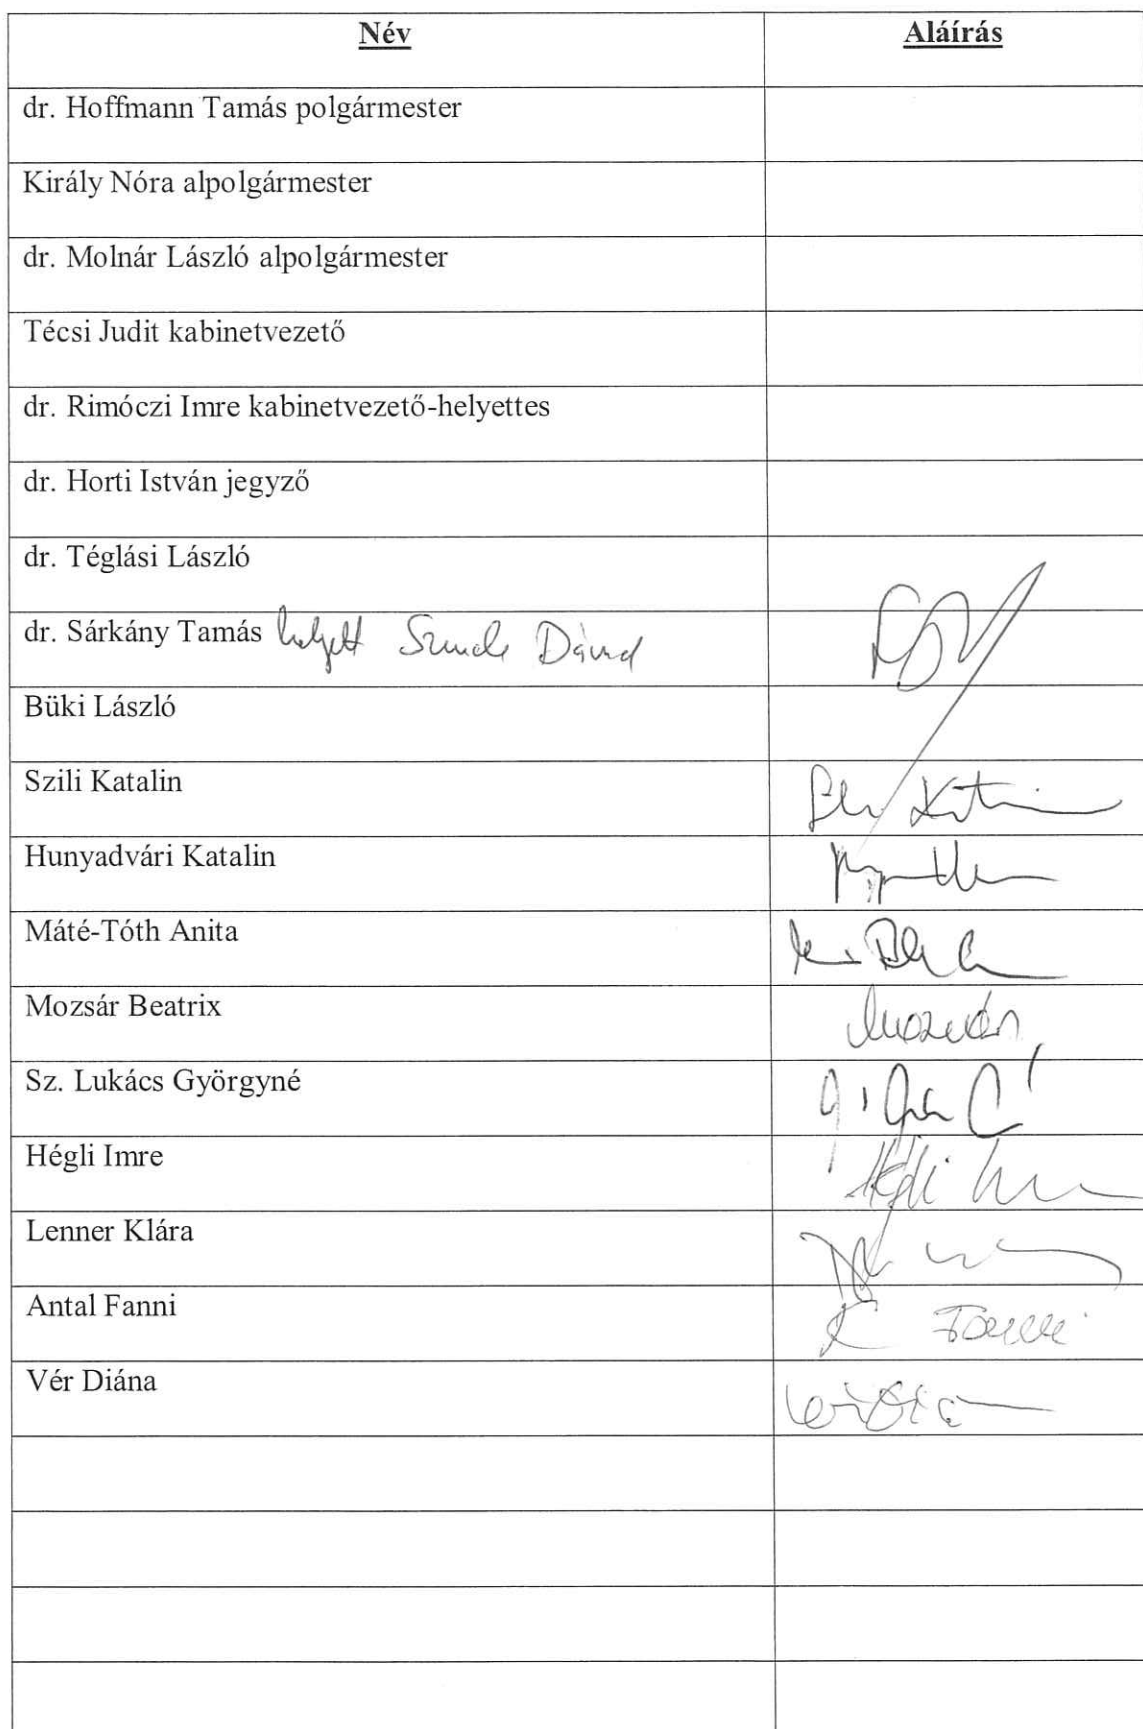 Név Aláírás
dr. Hoffmann Tamás polgármester
Király Nóra alpolgármester
dr. Molnár László alpolgármester
Técsi Judit kabinetvezető
dr. Rimóczi Imre kabinetvezető-helyettes
dr. Horti István jegyző
dr. Téglási László
dr. Sárkány Tamás helyett Dávid
Büki László
Szili Katalin
Hunyadvári Katalin
Máté-Tóth Anita
Mozsár Beatrix
Sz. Lukács Györgyné
Hégli Imre
Lenner Klára
Antal Fanni
Vér Diána